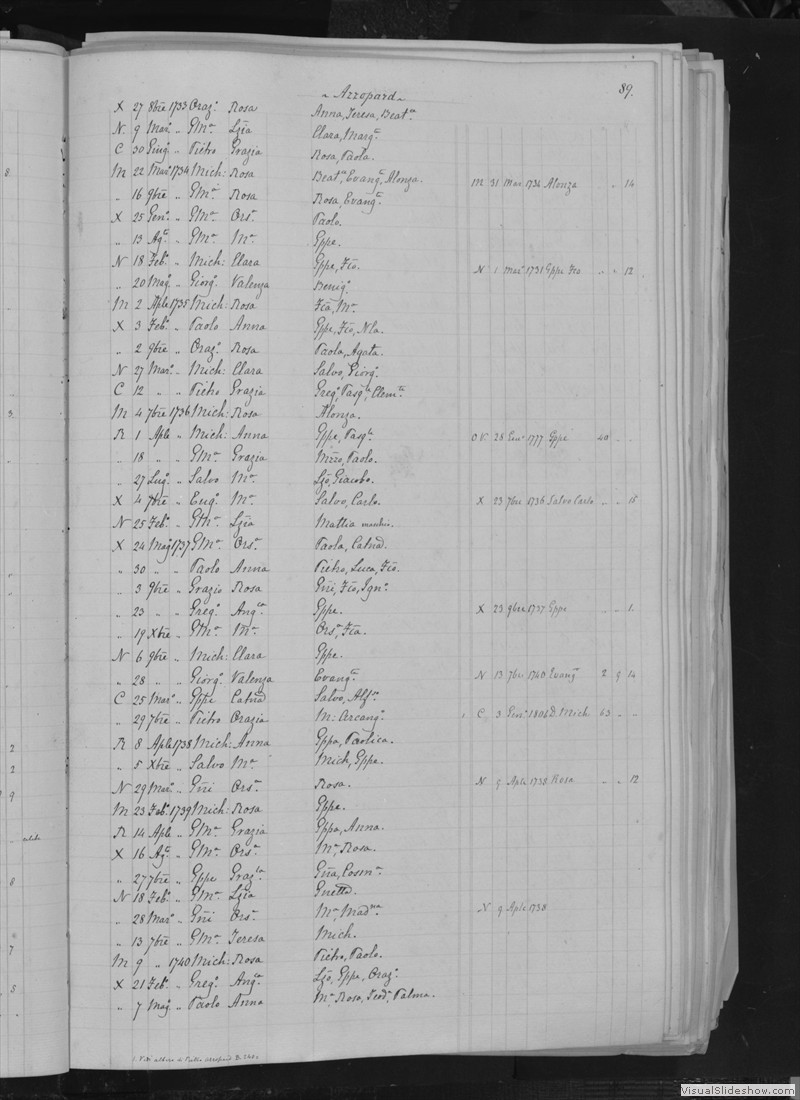 89.
„ Azzopard „
X 27 8bre 1733 Oraz.o Rosa Anna, Teresa, Beat.a
N 9 Mar.o „ GMa Lzia Clara, Marg.a
C 30 Giug.o „ Pietro Grazia Rosa, Paola.
8 M 22 Mar.o 1734 Mich: Rosa Beat.a, Evang.a, Alonza. M 31 Mar 1734 Alonza „ 14
„ 16 9bre „ GMa Rosa Rosa, Evang.a
X 25 Gen.o „ GMa Ors.a Paolo.
„ 13 Ag.o „ GMa Ma Gppe.
N 18 Feb.o „ Mich: Clara Gppe, Fco. N 1 Mar.o 1731 Gppe Fco „ „ 12
„ 20 Mag.o „ Giorg.o Valenza Benig.o
M 2 Aple 1735 Mich: Rosa Fca, Ma
X 3 Feb.o „ Paolo Anna Gppe, Fco, Nla.
„ 2 9bre „ Oraz.o Rosa Paola, Agata.
N 27 Mar.o „ Mich: Clara Salvo, Giorg.o
C 12 „ „ Pietro Grazia Greg.o, Pasq.le, Clem.te
3. M 4 7bre 1736 Mich: Rosa Alonza.
R 1 Aple „ Mich: Anna Gppe, Pasq.le O V 28 Gen.o 1777 Gppe 40 „
„ 18 „ „ GMa Grazia Mzzo, Paolo.
„ 27 Lug.o „ Salvo Ma Lzo, Giacobo.
X 4 7bre „ Eug.o Ma Salvo, Carlo. X 23 7bre 1736 Salvo Carlo „ „ 15
N 25 Feb.o „ GMa Lzia Mattia maschio.
X 24 Mag.o 1737 GMa Ors.a Paola, Catnd.
„ 30 „ „ Paolo Anna Pietro, Luca, Fco.
„ 3 9bre „ Grazio Rosa Gni, Fco, Ign.o
„ 23 „ „ Greg.o Ang.ca Gppe. X 23 9bre 1737 Gppe „ „ 1.
„ 19 Xbre „ GMa Ma Ors.a, Fca.
N 6 9bre „ Mich: Clara Gppe.
„ 28 „ „ Giorg.o Valenza Evang.a N 13 7bre 1740 Evang.a 2 9 14
C 25 Mar.o „ Gppe Catnd Salvo, Alf.so
„ 29 7bre „ Pietro Grazia M: Arcang.o 1 C 3 Gen.o 1804 D. Mich 63 „ „
2 R 8 Aple 1738 Mich: Anna Gppa, Paolica.
2 „ 5 Xbre „ Salvo Ma Mich, Gppe.
9 N 29 Mar.o „ Gni Ors.a Rosa. N 9 Aple 1738 Rosa „ „ 12
M 23 Feb.o 1739 Mich: Rosa Gppe.
R 14 Aple „ GMa Grazia Gppa, Anna.
X 16 Ag.o „ GMa Ors.a Ma, Rosa.
8 „ 27 7bre „ Gppe Graz.la Gna, Cosm.a
N 18 Feb.o „ GMa Lzia
„ 28 Mar.o „ Gni Ors.a Ma, Mad.na N 9 Aple 1738
7 „ 13 7bre „ GMa Teresa Mich.
M 9 „ 1740 Mich: Rosa Pietro, Paolo.
8 X 21 Feb.o „ Greg.o Ang.ca Lzo, Gppe, Oraz.o
„ 7 Mag.o „ Paolo Anna Ma, Rosa, Teod.a, Palma.
VisualSlideshow.com